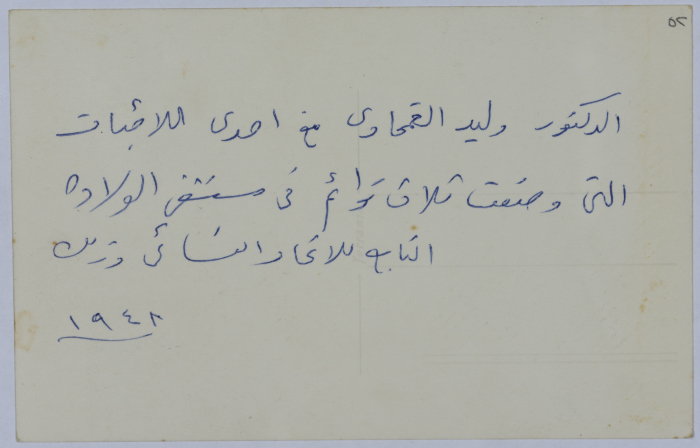 ٥٢
الدكتور وليد القمحاوى مع احدى اللاجئات
التى وضعت ثلاث توائم فى مستشفى الولادة
التابع للاتحاد النسائى وذلك
١٩٤٨